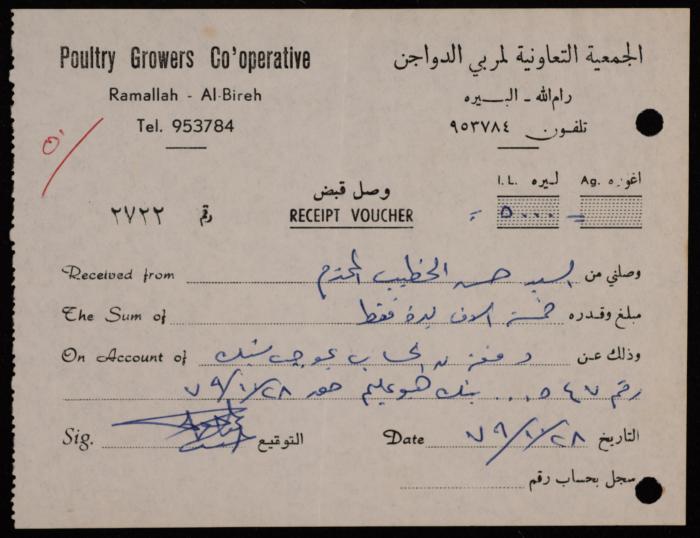 Poultry Growers Co'operative
الجمعية التعاونية لمربي الدواجن
Ramallah - Al-Bireh
رام الله - البـيره
Tel. 953784
تلفون ٩٥٣٧٨٤
وصل قبض
RECEIPT VOUCHER
رقم ٢٧٢٢
I.L. ليره
Ag. اغوره
= ٥٠٠٠ =
Received from السيد حسن الخطيب المحترم وصلني من
The Sum of خمسة الاف ليرة فقط مبلغ وقدره
On Account of دفعة من الحساب بموجب شيك وذلك عن
رقم ٥٤٧... بنك هبوعليم ٧٩/١/٢٨
Sig. التوقيع
Date ٧٩/١/٢٨ التاريخ
سجل بحساب رقم